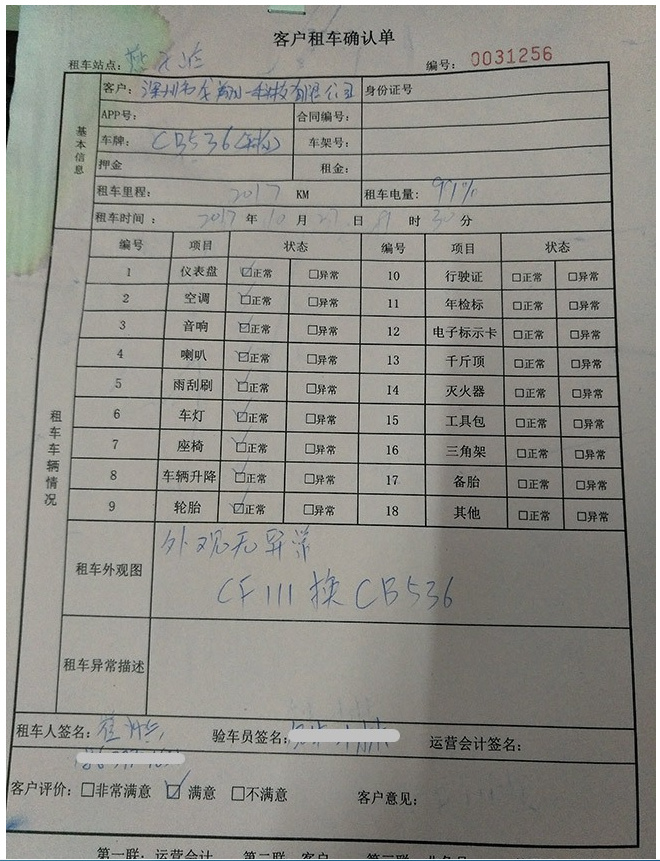 客户租车确认单
租车站点: 编号: 0031256
基本信息
客户: 深圳市 科技有限公司 身份证号
APP号: 合同编号:
车牌: CB536 车架号:
押金 租金:
租车里程: 2017 KM 租车电量: 99%
租车时间: 2017年10月27日 时30分
租车车辆情况
编号 项目 状态 编号 项目 状态
1 仪表盘 ☑正常 □异常 10 行驶证 □正常 □异常
2 空调 ☑正常 □异常 11 年检标 □正常 □异常
3 音响 ☑正常 □异常 12 电子标示卡 □正常 □异常
4 喇叭 ☑正常 □异常 13 千斤顶 □正常 □异常
5 雨刮刷 ☑正常 □异常 14 灭火器 □正常 □异常
6 车灯 ☑正常 □异常 15 工具包 □正常 □异常
7 座椅 ☑正常 □异常 16 三角架 □正常 □异常
8 车辆升降 ☑正常 □异常 17 备胎 □正常 □异常
9 轮胎 ☑正常 □异常 18 其他 □正常 □异常
租车外观图 外观无异常
CF111换CB536
租车异常描述
租车人签名: 验车员签名: 运营会计签名:
客户评价: □非常满意 ☑满意 □不满意 客户意见:
第一联: 运营会计 第二联 客户 第三联